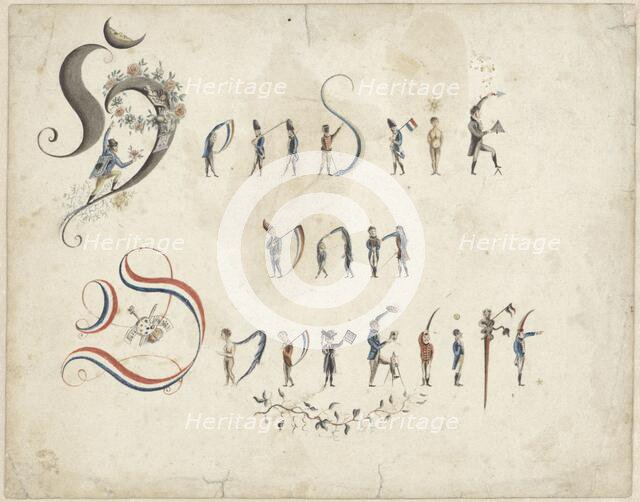 Heritage Heritage
Hendrik
van
Heritage Heritage
Overklift
Heritage Heritage